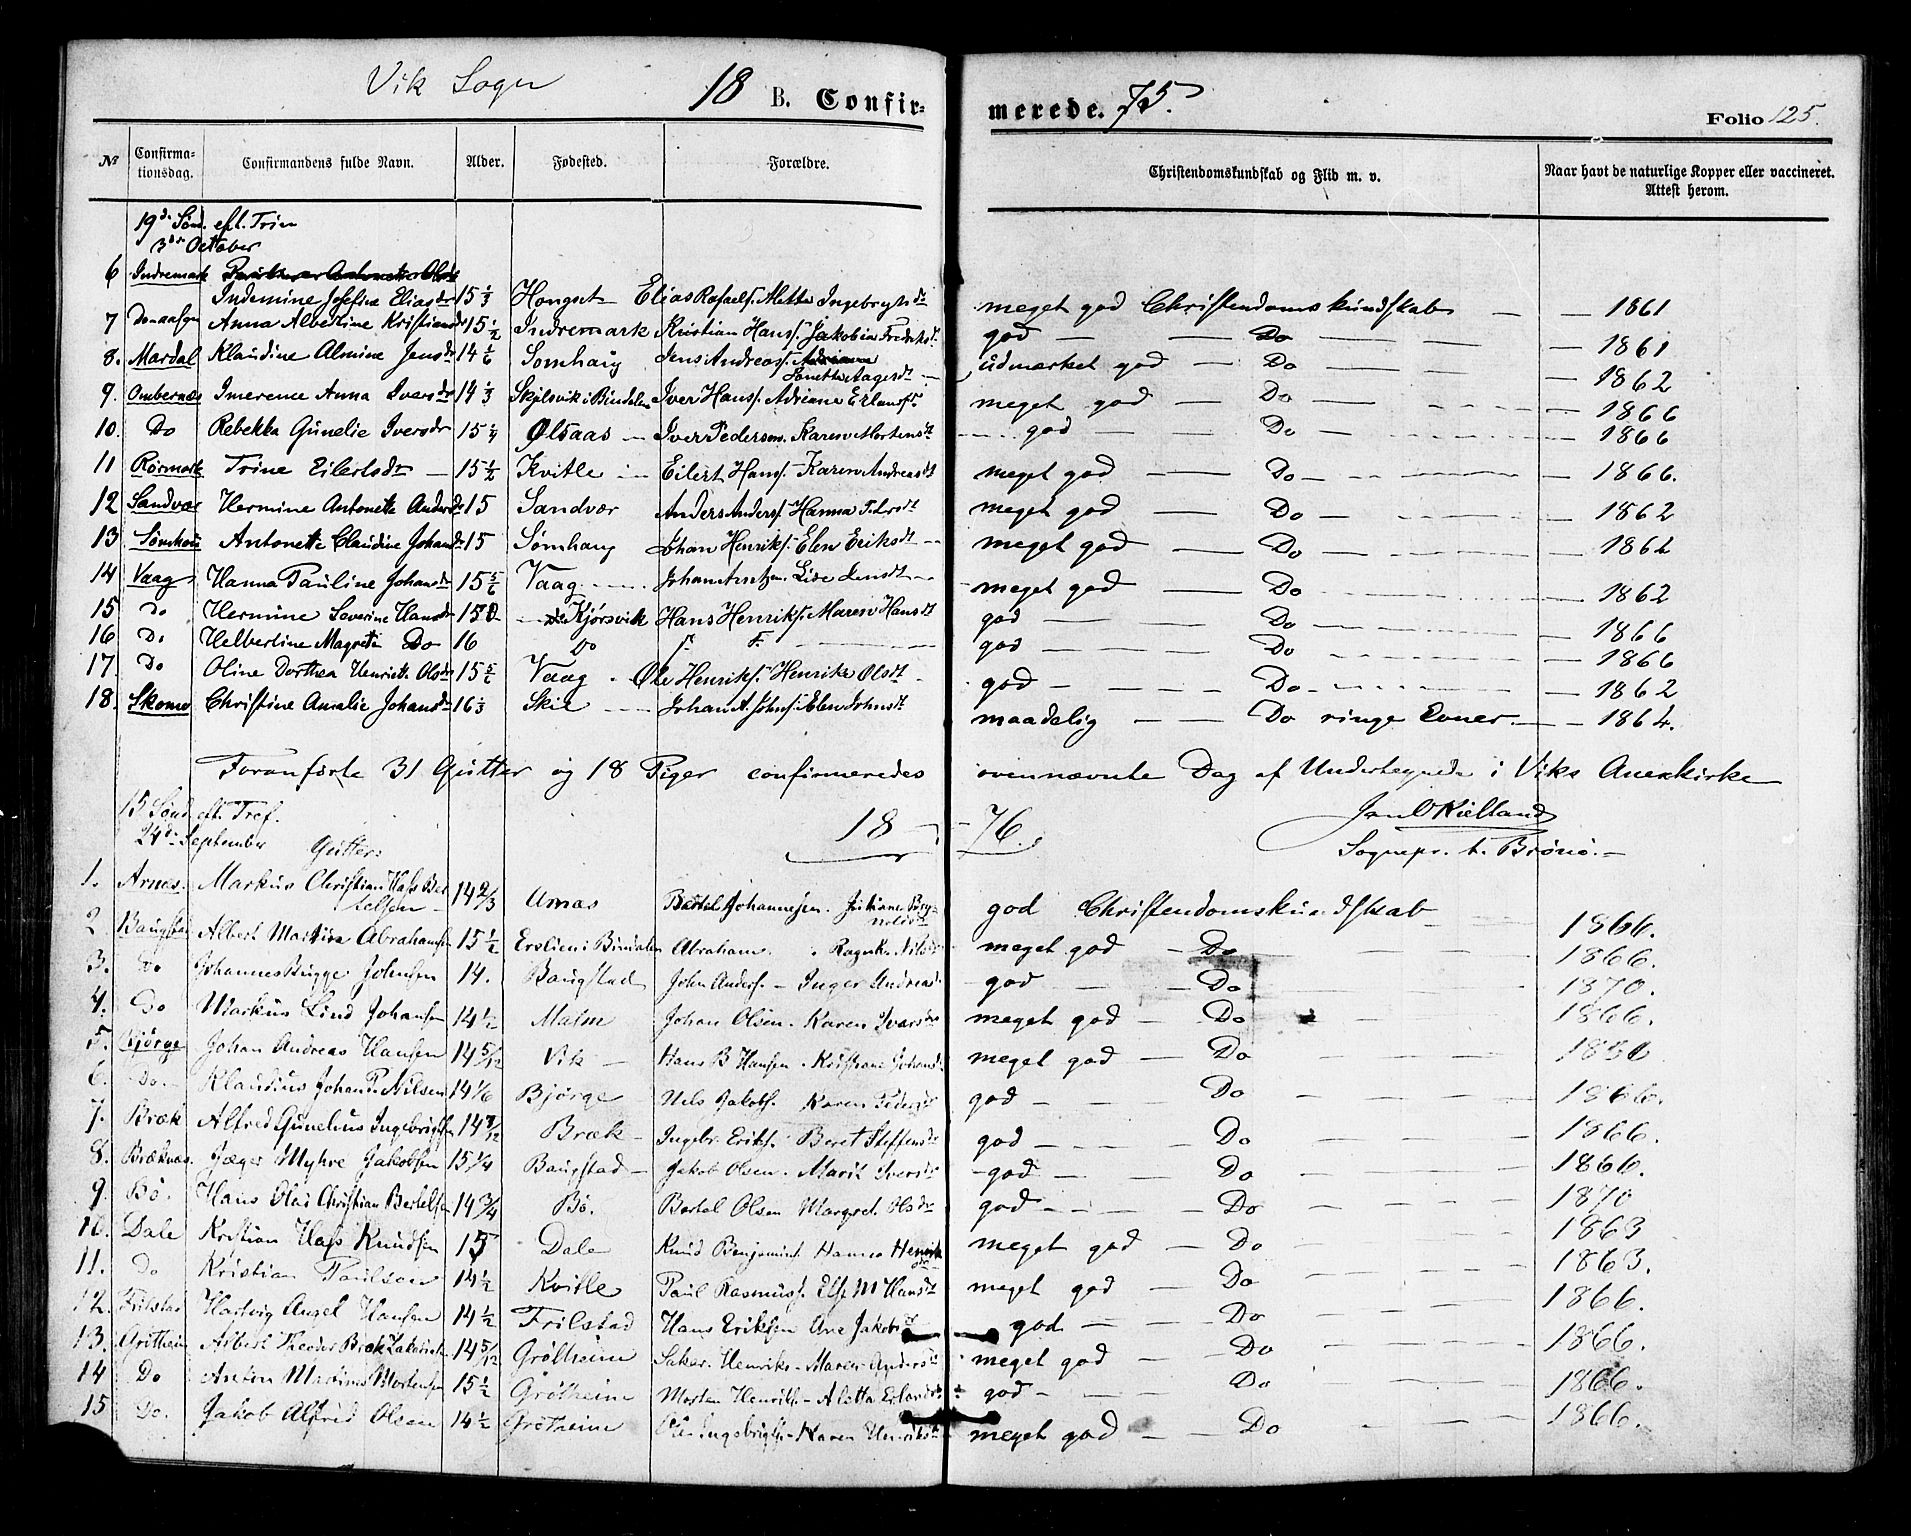 Vik Sogn 18 B. Confir- merede. 75. Folio 125.
№ Confirma- tionsdag. Confirmandens fulde Navn. Alder. Fødested. Forældre. Christendomskundskab og Flid m. v. Naar havt de naturlige Kopper eller vaccineret. Attest herom.
19de Sønd. eft. Trin
3die October
6 Indremark
Indemine Josefine Eliasdr 15 1/3 Hongset Elias Rafaels. Mette Ingebrigtsdt meget god Christendomskundskab — — 1861
7 Anna Albertine Kristiansdr 15 1/2 Indremark Kristian Hans. Jakobia Fredriksdt god — — Do — 1861
8. Mardal Klaudine Almine Jensdr 14 1/6 Somhaug Jens Andreas.
Aagesdt — udmærket god — Do — 1862
9. Ombernæs Imerence Anna Iversdr 14 1/3 Skjelsvik i Bindalen Iver Hans. Adriane Erlands. meget god — Do — 1866
10. Do Rebekka Gunelie Iversdr 15 1/4 Ølsaas — Iver Pedersen. Karen Mortensdt god — Do — 1866
11 Rørmark Trine Eilertsdr — 15 1/2 Kvitle — Eilert Hans. Karen Andreasdt meget god — Do — 1866.
12 Sandvær Hermine Antonette Andersdr 15 Sandvær Anders Anders. Hanna meget god — Do — 1862
13 Sømhau Antonette Claudine Johansdr 15 Sømhaug Johan Henriks. Elen Eriksdt — meget god — Do — 1862
14 Vaag Hanna Pauline Johansdr 15 5/6 Vaag — Johan Lise Jensdt — meget god — Do — 1862
15 Do Hermine Severine Hansdr 15 Kjørsvik Hans Henriks. Maren Hansdt god — Do — 1866
16 Do Helbertine Magreta Do 16 Do god — Do — 1866
17. Do Oline Dorthea Henriette Olsdr 15 5/6 Vaag. Ole Henriks. Henrika Olsdt god — Do — 1862
18. Skomo Christine Amalie Johansdr 16 1/3 Skie — Johan A. Johns. Elen Johnsdt maadelig — — Do ringe Evner — 1864.
Foranførte 31 Gutter og 18 Piger confirmeredes ovennævnte Dag af Undertegnede i Viks Anexkirke
15 Sønd. eft. Tref. 18 — 76. Jan O Kielland
24de September Gutter Sognepr. t. Brønø. —
1. Arnes. Markus Christian Hass Ber
telsen — 14 2/3 Arnas Bertel Johannesen. god Christendomskundskab — 1866.
2 Baugstad Albert Martin Abrahamsen 15 1/2 Erslien i Bindalen Abraham . Ragnh. Nilsdt meget god — Do — 1866.
3. Do Johannes Bugge Johnsen 14. Baugstad John Anders. — Inger Andreasd. god — Do — 1870.
4. Do Markus Lind Johansen 14 1/2 Malm Johan Olsen. Karen Ivarsdr meget god — Do — 1866.
5. Bjørge Johan Andreas Hansen 14 5/12 Vik — Hans B Hansen. Kristiane Johansd meget god — Do —
6. Do. — Klaudius Johan P. Nilsen 14 1/6 Bjørge Nels Jakobs. Karen Pedersdr god — Do — 1866.
7. Bræk Alfred Gunelius Ingebrigtsen 14 7/12 Bræk — Ingebr. Eriks. Beret Steffensdt god — Do — 1866.
8. Bræknæs. Jæger Myhre Jakobsen 15 1/4 Baugstad — Jakob Olsen. Marit Iversdt god — Do — 1866.
9. Bø. Hans Olai Christian Bertelsen 14 3/4 Bø. Bertel Olsen Margret. Olsdr god — Do — 1870
10. Dale Kristian Hass Knudsen 15 Dale Knud Benjamins. Hanna Henrik
dr meget god — Do — 1863
11. Do Kristian Paulsen 14 1/2 Kvitle Paul Rasmuss. Else M Hansdt meget god — Do — 1863.
12. Frilstad Hartvig Angel Hansen 14 1/2 Frilstad Hans Eriksen Ane Jakobsdr god — Do 1866.
13. Grøtheim Albert Theodor Bræk Zakariasen 14 5/12 Grøtheim Sakar. Henriks — Maren Andersdt meget god — Do — 1866.
14 Do Anton Martinus Mortensen 15 1/2 Grøtheim Morten Henriks — Aletta Erlandsdt god — Do — 1866.
15 Do. Jakob Alfred Olsen 14 1/2 Grøtheim Ole Ingebrigts — Karen Henriksdt meget god — Do — 1866.